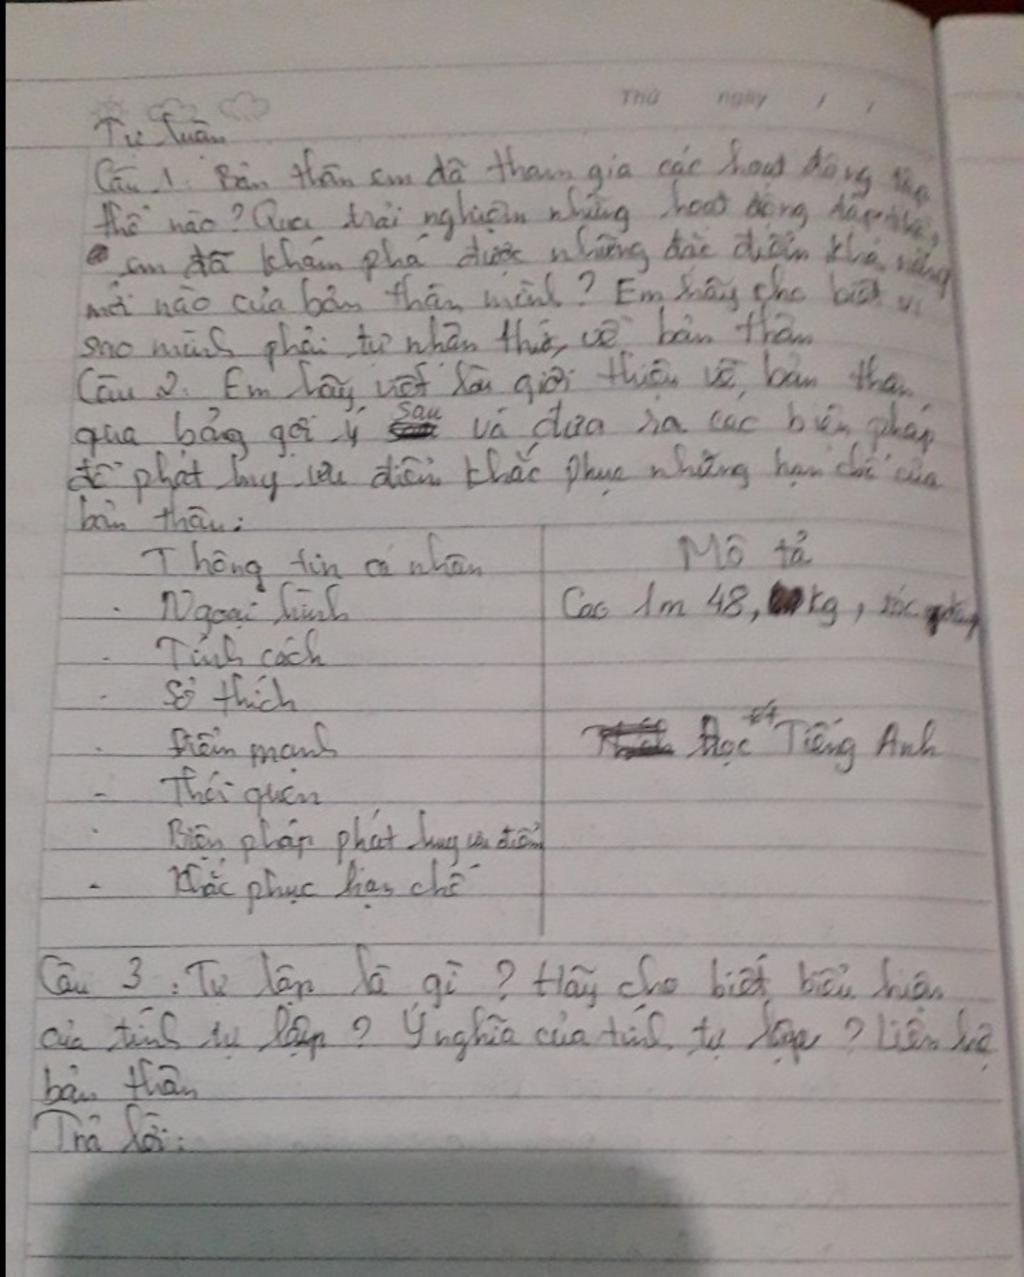 Thứ ngày / /
Tự luận
Câu 1. Bản thân em đã tham gia các hoạt động tập
thể nào? Qua trải nghiệm những hoạt động tập thể,
em đã khám phá được những đặc điểm khả năng
mới nào của bản thân mình? Em hãy cho biết vì
sao mình phải tự nhận thức về bản thân
Câu 2. Em hãy viết lời giới thiệu về bản thân
qua bảng gợi ý sau và đưa ra các biện pháp
để phát huy ưu điểm khắc phục những hạn chế của
bản thân:
Thông tin cá nhân Mô tả
- Ngoại hình Cao 1m 48, kg, tóc
- Tính cách
- Sở thích
- Điểm mạnh Học tốt Tiếng Anh
- Thói quen
- Biện pháp phát huy ưu điểm
- Khắc phục hạn chế
Câu 3: Tự lập là gì? Hãy cho biết biểu hiện
của tính tự lập? Ý nghĩa của tính tự lập? Liên hệ
bản thân
Trả lời: